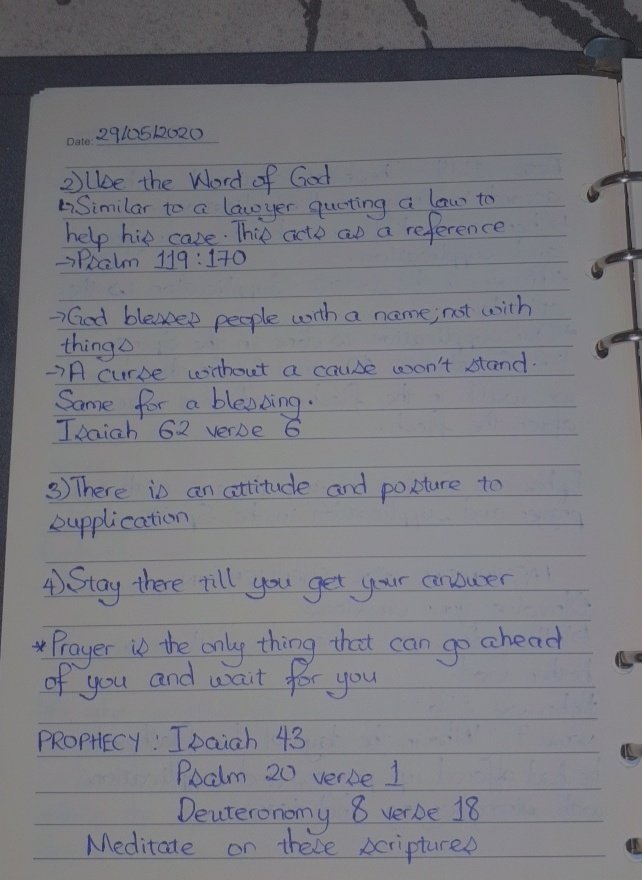 Date: 29/05/2020
2) Use the Word of God
↳ Similar to a lawyer quoting a law to
help his case. This acts as a reference
→ Psalm 119:170
→ God blesses people with a name; not with
things
→ A curse without a cause won't stand.
Same for a blessing.
Isaiah 62 verse 6
3) There is an attitude and posture to
supplication
4) Stay there till you get your answer
* Prayer is the only thing that can go ahead
of you and wait for you
PROPHECY: Isaiah 43
Psalm 20 verse 1
Deuteronomy 8 verse 18
Meditate on these scriptures